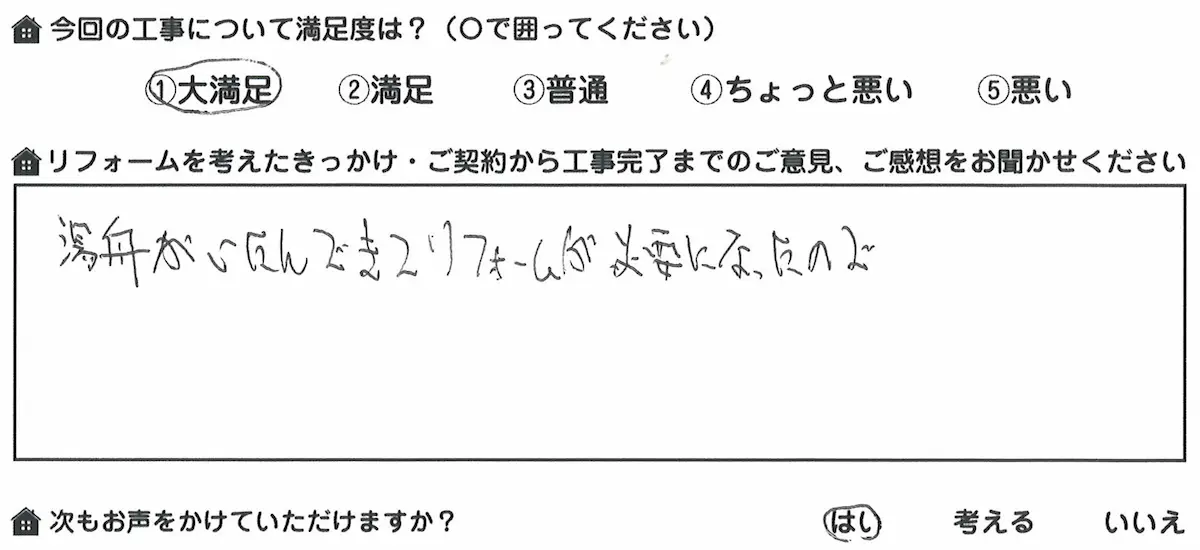 今回の工事について満足度は？（〇で囲ってください）
①大満足 ②満足 ③普通 ④ちょっと悪い ⑤悪い
リフォームを考えたきっかけ・ご契約から工事完了までのご意見、ご感想をお聞かせください
湯舟がいたんできてリフォームが必要になったので
次もお声をかけていただけますか？ はい 考える いいえ